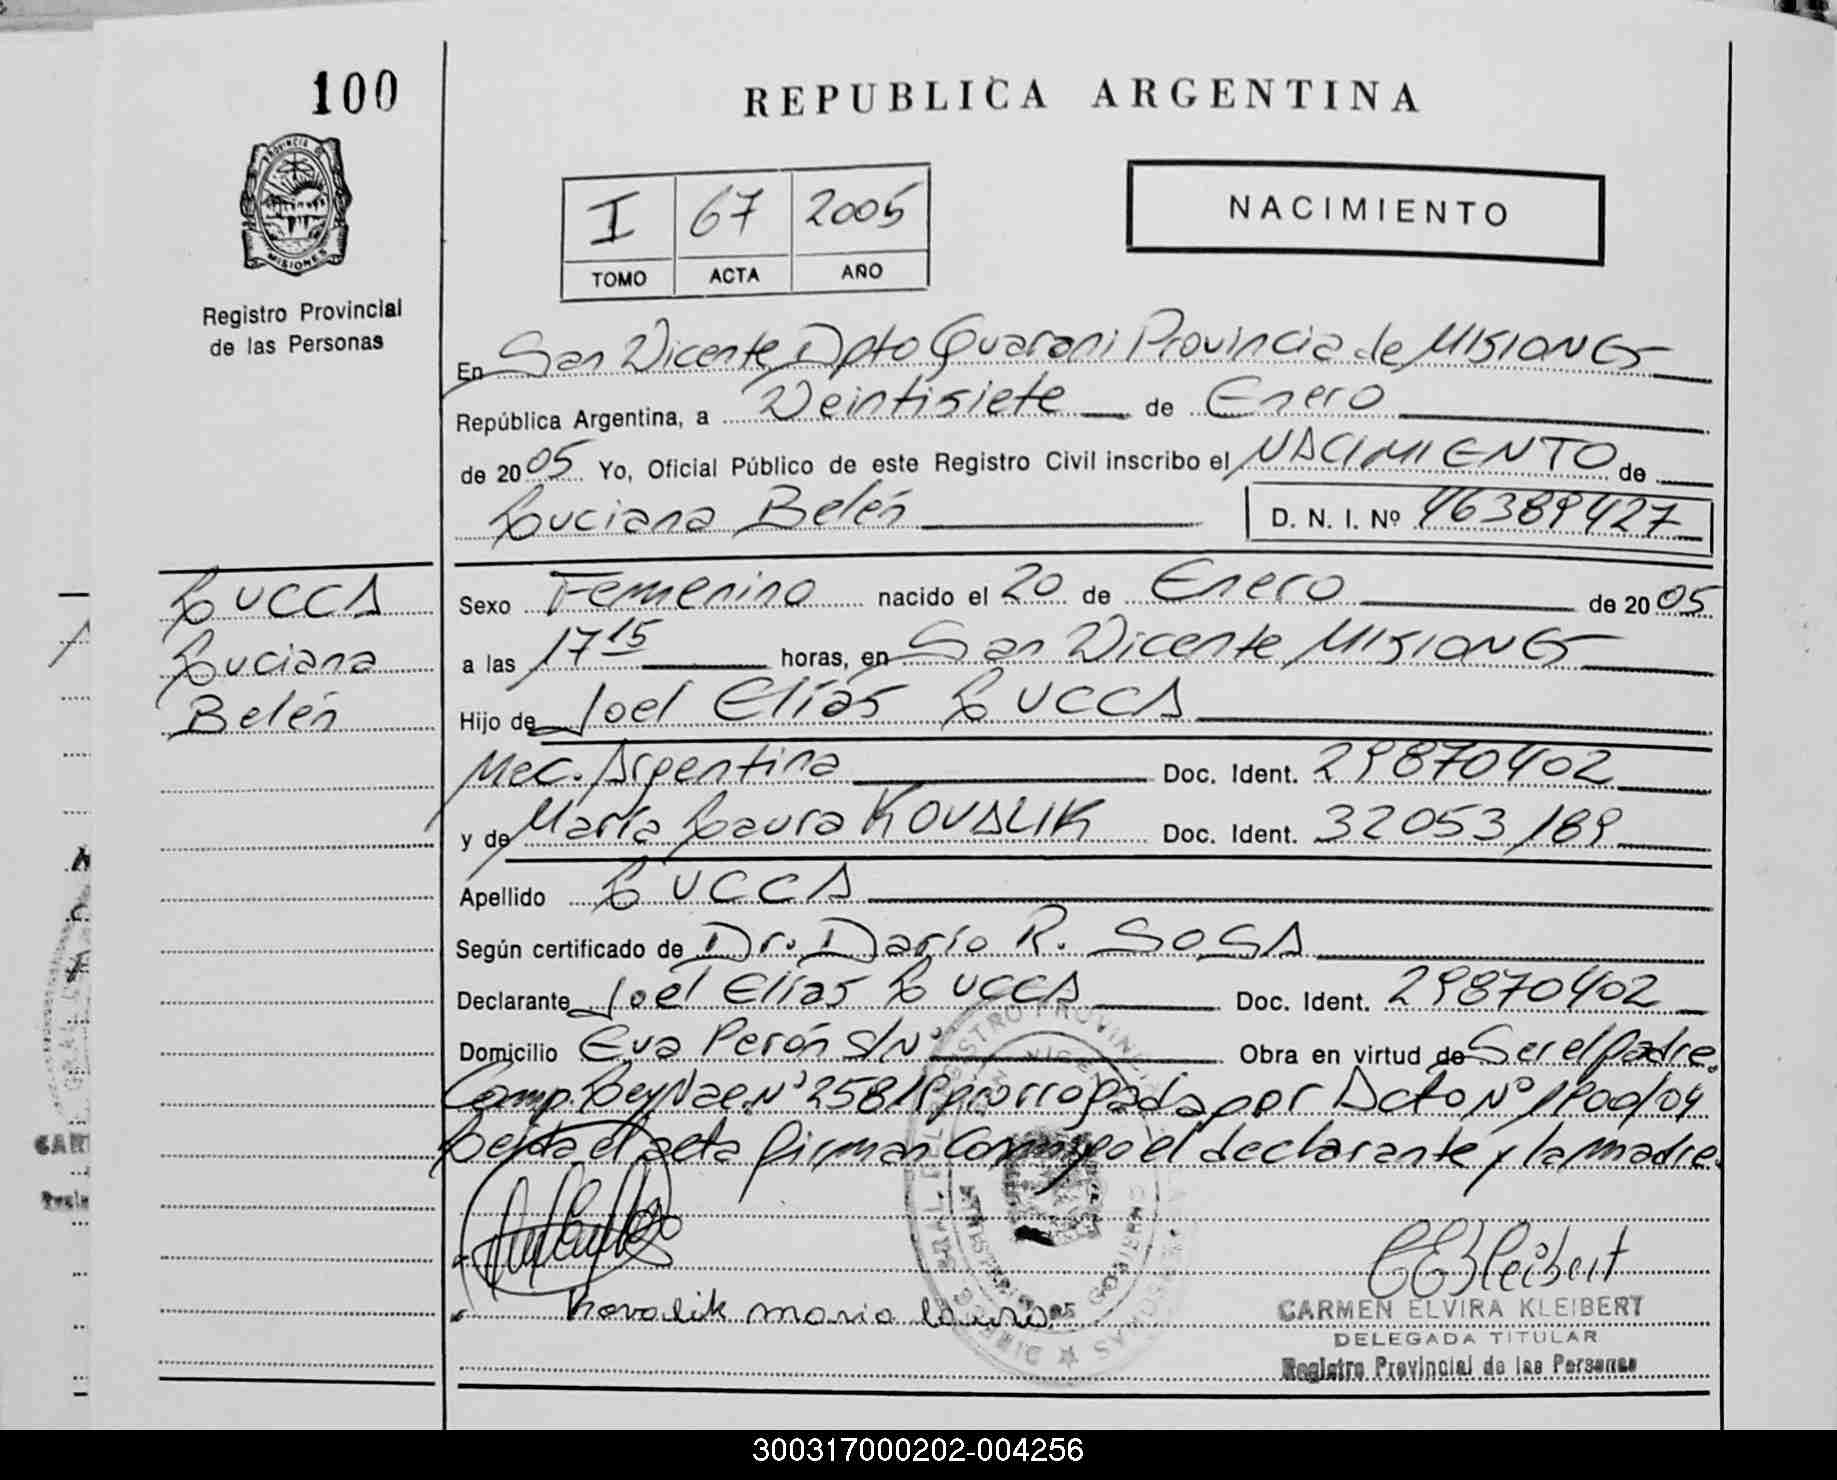 100
REPUBLICA ARGENTINA
PROVINCIA DE
MISIONES
Registro Provincial
de las Personas
I 67 2005
TOMO ACTA AÑO
NACIMIENTO
En San Vicente Dpto Guarani Provincia de MISIONES
República Argentina, a Veintisiete de Enero
de 2005 Yo, Oficial Público de este Registro Civil inscribo el NACIMIENTO de
Luciana Belén D. N. I. Nº 46389427
LUCCA
Luciana
Belén
Sexo Femenino nacido el 20 de Enero de 2005
a las 17 15 horas, en San Vicente MISIONES
Hijo de Joel Elías LUCCA
Nac. Argentina Doc. Ident. 29870402
y de María Laura KOVALIK Doc. Ident. 32053189
Apellido LUCCA
Según certificado de Dr. Darío R. SOSA
Declarante Joel Elías LUCCA Doc. Ident. 29870402
Domicilio Eva Perón S/Nº Obra en virtud de Ser el Padre.
Comp. Ley Nac. Nº prorrogada por Dcto Nº 1900/04
Leída el acta firman conmigo el declarante y la madre.
Kovalik maria laura
CARMEN ELVIRA KLEIBERT
DELEGADA TITULAR
Registro Provincial de las Personas
300317000202-004256